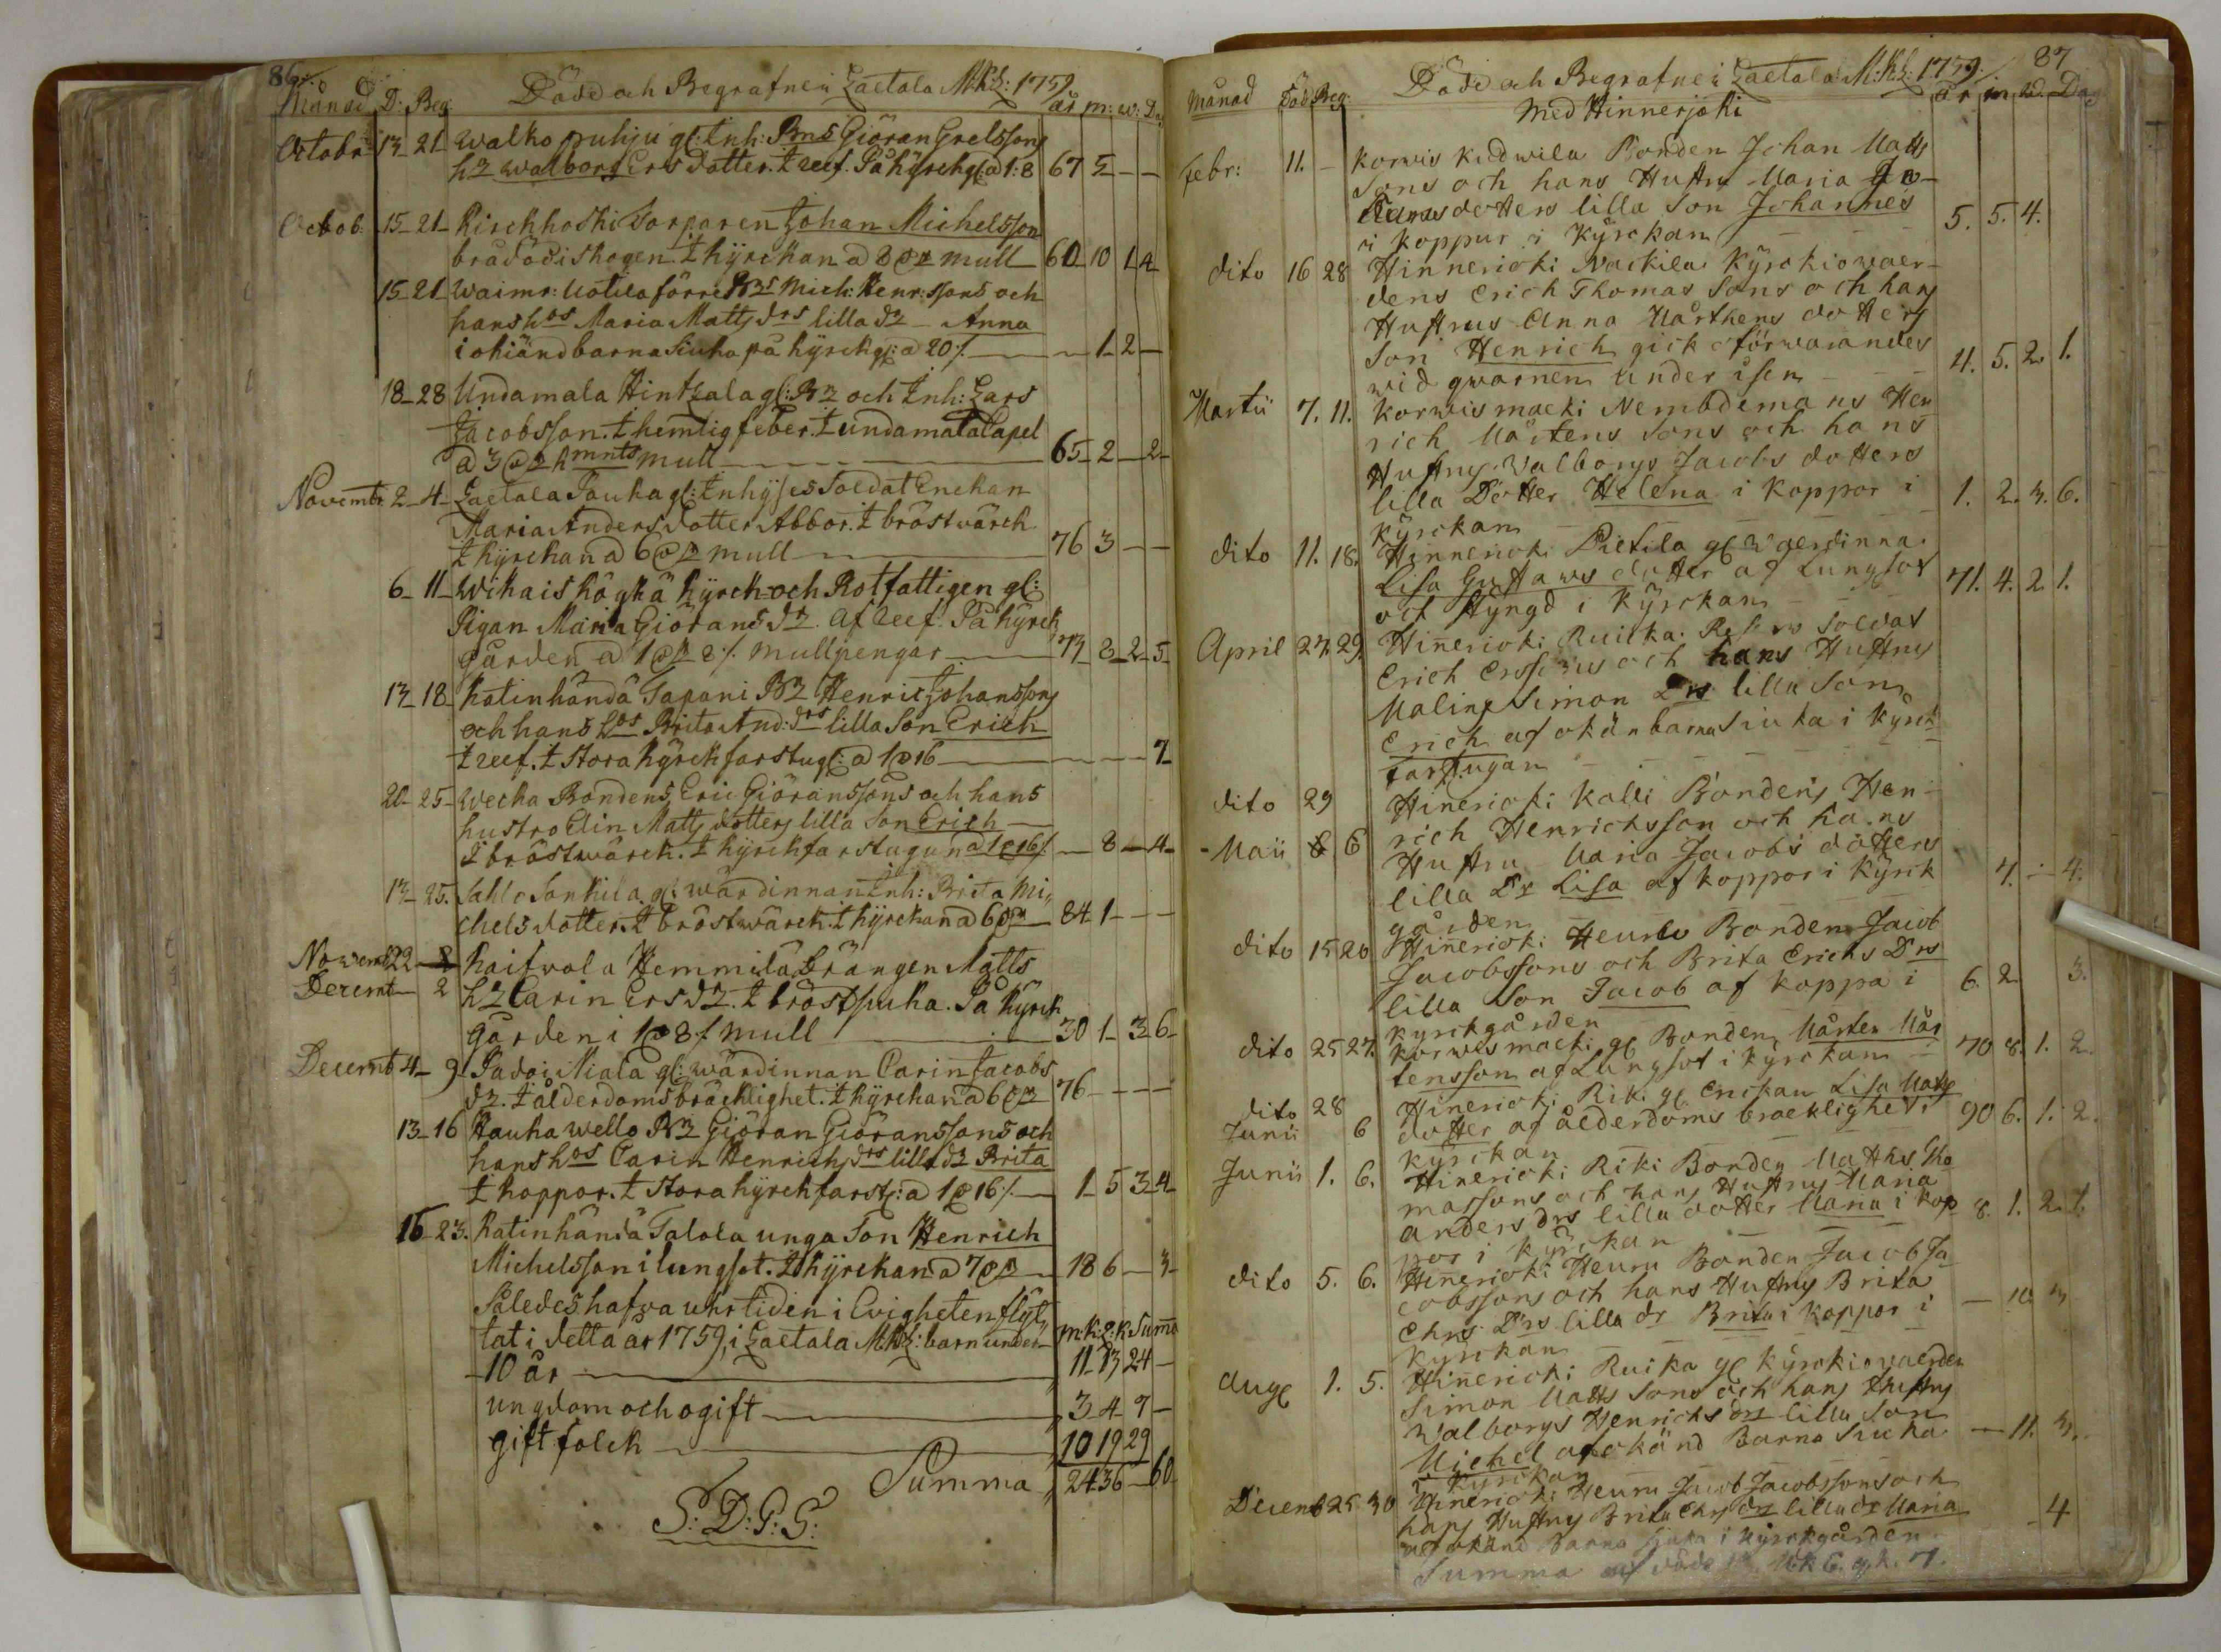 86
Månad D: Beg: Död och Begrafne i Laetala M:K:S: 1759 år m: w: Dag
Octobr 13 21 Walko puhju gl: Inh: Bns Giöran Grelssons
h3 Walborg Ers dotter. t reef. På kyrckg: a 1:8 67 5 - -
Octob: 15 21 Kirckhoski Torparen Johan Michelsson
brådöd i skogen. t kyrckan a mull 60 10 1 4
15 21 Waimr: förre Mich: Henr: ssons och
hans hos Maria Matts drs lilla dr Anna
i okiänd barnasiuka på kyrckg: a 20 - 1 2 -
18 28 Undamala Hintzala gl: och Inh: Lars
Jacobsson. t hemlig feber. t undamala Capel
a 3 mull 65 2 - 2
Novembr 2 4 Laetala Jauka gl: Inhyses Soldat Enckan
Maria Anders dotter Abbor. t bröstwärck
t kyrckan a 6 mull 76 3 - -
6 11 Wikais kyrck och Rotfattigen gl:
Pigan Maria Giörans dr. af reef. På kyrck
gården a 1 8 mullpengar 73 8 2 5
13 18 Katinhändä Tapani Henric Johanssons
och hans hos Brita And: drs lilla Son Erich
t reef. t stora kyrckfarstug: a 1 16 - - - 7
20 25 Wecka Bondens Eric Giöranssons och hans
hustro Elin Matts dotters lilla Son Erich
t bröstwärck. t kyrckfarstugun a 1 16 - 8 - 4
13 25. Sallo gl: wärdinnan Inh: Brita Mi
chels dotter. t bröstwärck. t kyrckan a 6 84 1 - -
Novemb 22 Haitwola Hemmilä Drängen Matts
Decemt 2 h3 Carin Ers d3. t bröstsiuka. På kyrck
gården i 1 8 mull 30 1 3 6
Decemb 4 9 Padoi Niala gl: wärdinnan Carin Jacobs
d3. t ålderdoms bräcklighet. t kyrckan a 6 76 - - -
13 16 Kauka wello Giöran Giöranssons och
hans hos Carin Henrichs drs lilla d3 Brita
t koppor. t stora kyrckfarst: a 1 16 1 5 3 4
16 23. Katinhändä Talola unga Son Henrich
Michelsson i lungsot. t kyrckan a 7 18 6 - 3
Således hafwa uhr tiden i Evigheten flyt
tat i detta år 1759, i Laetala M:K:S: barn under m:k: q:k Suma
10 år 11 13 24 -
ungdom och ogift 3 4 7 -
gift folck 10 19 29
Summa 24 36 - 60
S: D: G: S:
87
Månad Död Beg: Död och Begrafne i Laetala M:K:S: 1759. år m w. Dag
Med Hinnerjoki
febr: 11. - Korwis kudwila Bonden Johan Matts
Sons och hans Hustru Maria
dotters lilla Son Johannes 5. 5. 4.
i Koppur i Kyrckan
dito 16 28 Hinnerioki Nackila Kyrckiowaer
dens Erich Thomas Sons och hans
Hustrus Anna Mårthens dotters
Son Henrich gick oförwarandes 4. 5. 2. 1.
wid qwarnen under isen
Martii 7. 11. Korwismaeki Nembdemans Hen
rich Mårtens Sons och hans
Hustrus Walborgs Jacobs dotters
lilla Dotter Helena i Koppor i 1. 2. 3. 6.
Kyrckan
dito 11. 18. Hinnerioki Pietila gl Waerdinna
Lisa Gustaws dotter af Lungsot 71. 4. 2. 1.
och Hyngd i Kyrckan
April 27. 29. Hinerioki Ruicka Soldat
Erich Erssons och hans Hustrus
Malin Simon Drs lilla Son
Erich af okän barnasiuka i Kyrck
farstugan
dito 29 Hinerioki Kalli Bondens Hen
Maii 8 6 rich Henrichsson och hans
Hustru Maria Jacobs dotters
lilla Dr Lisa af koppor i Kyrck 4. - 4.
gården
dito 15 20 Hinerioki Heuru Bonden Jacob
Jacobssons och Brita Erichs Drs
lilla Son Jacob af koppa i 6. 2. 3.
Kyrckgården
dito 25 27. Korwismaeki gl Bonden Mårten Mår
tensson af Lungsot i Kyrckan 70 8. 1. 2.
dito 28 Hinerioki Riki gl Enckan Lisa Matts
Junii 6 dotter af ålderdoms braeklighet i 90 6. 1. 2.
Kyrckan
Junii 1. 6. Hinerioki Riki Bonden Matths Tho
massons och hans Hustrus Maria
Anders drs lilla dotter Maria i Kop 8. 1. 2. 1.
por i Kyrckan
dito 5. 6. Hinerioki Heuru Bonden Jacob Ja
cobssons och hans Hustrus Brita
Ehrs Drs lilla dr Brita i koppor i - 10. 3
Kyrckan
Aug 1. 5. Hinerioki Ruika gl Kyrckiowaerden
Simon Matts Sons och hans Hustrus
Walborgs Henrichs drs lilla Son
Michel af okänd Barna Siuka - 11. 3.
i Kyrckan
Decemb 25 30 Hinerioki Heuru Jacob Jacobssons och
hans Hustrus Brita Ehrs drs lilla dr Maria - 4
af okänd Barna Siuka i Kyrckgården
Summa af döde 13. M:k 6. q:k. 7.